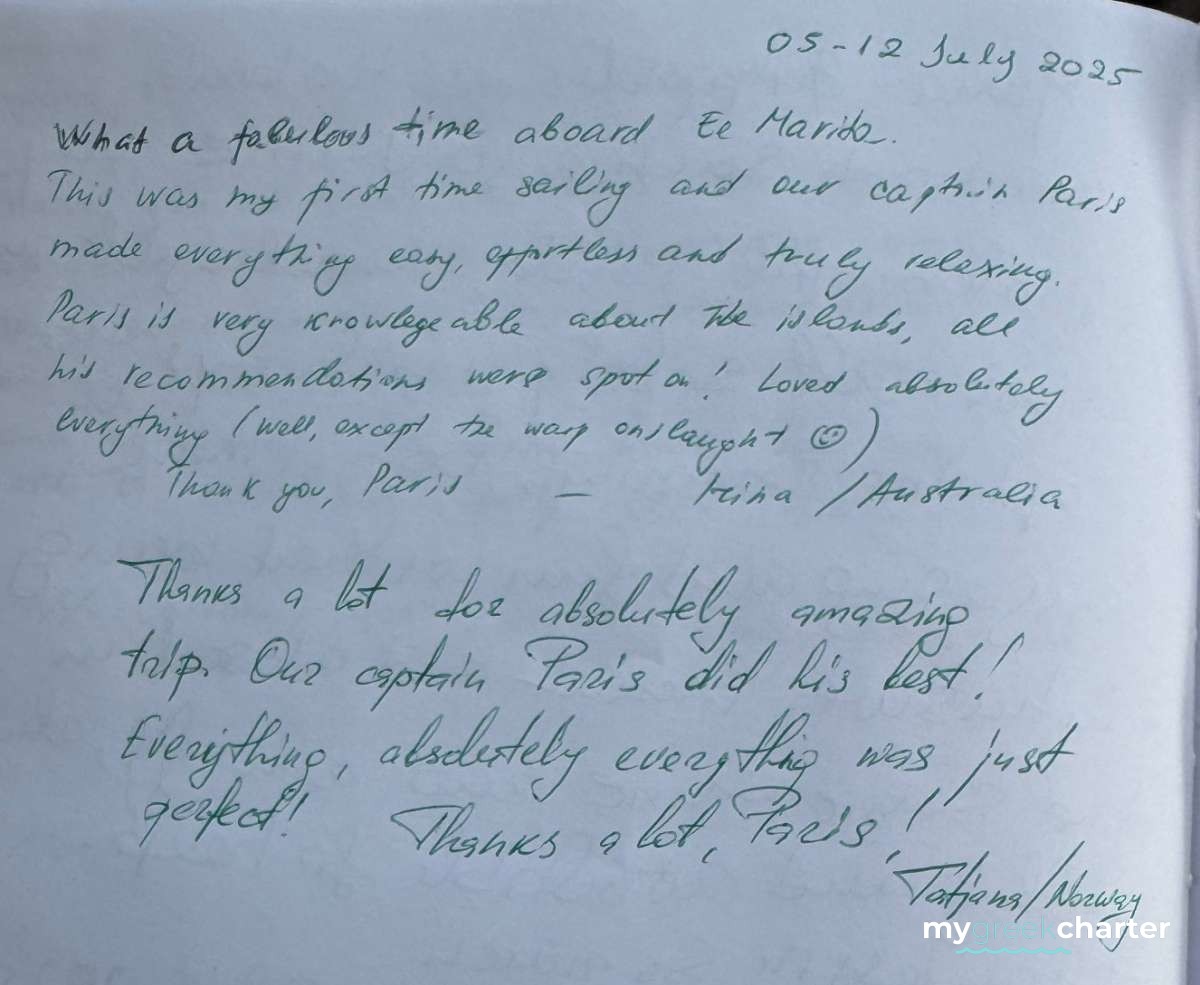 05-12 July 2025
What a fabulous time aboard Ee Marido.
This was my first time sailing and our captain Paris
made everything easy, effortless and truly relaxing.
Paris is very knowlegeable about the islands, all
his recommendations were spot on! Loved absolutely
everything (well, except the wasp onslaught ☺)
Thank you, Paris — Irina / Australia
Thanks a lot for absolutely amazing
trip. Our captain Paris did his best!
Everything, absolutely everything was just
perfect! Thanks a lot, Paris!
Tatjana/Norway
mygreekcharter